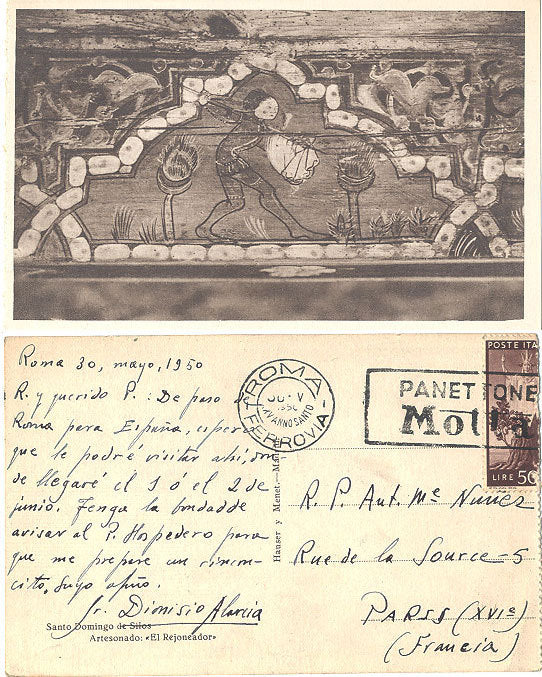 Roma 30, mayo, 1950
R. y querido P.: De paso por
Roma para España, espero
que le podré visitar ahí, don
de llegaré el 1 ó el 2 de
junio. Tenga la bondadde
avisar al P. Hospedero para
que me prepare un rincon-
cito, suyo affmo.
fr. Dionisio Alarcia
Santo Domingo de Silos
Artesonado: «El Rejoneador»
Hauser y Menet.—
ROMA
30 · V
1950
XXV ANNO SANTO
FERROVIA
PANETTONE
Motta
POSTE ITA
LIRE 50
R. P. Ant. Mª Nuñez
Rue de la Source - 5
PARSS (XVIe)
(Francia)